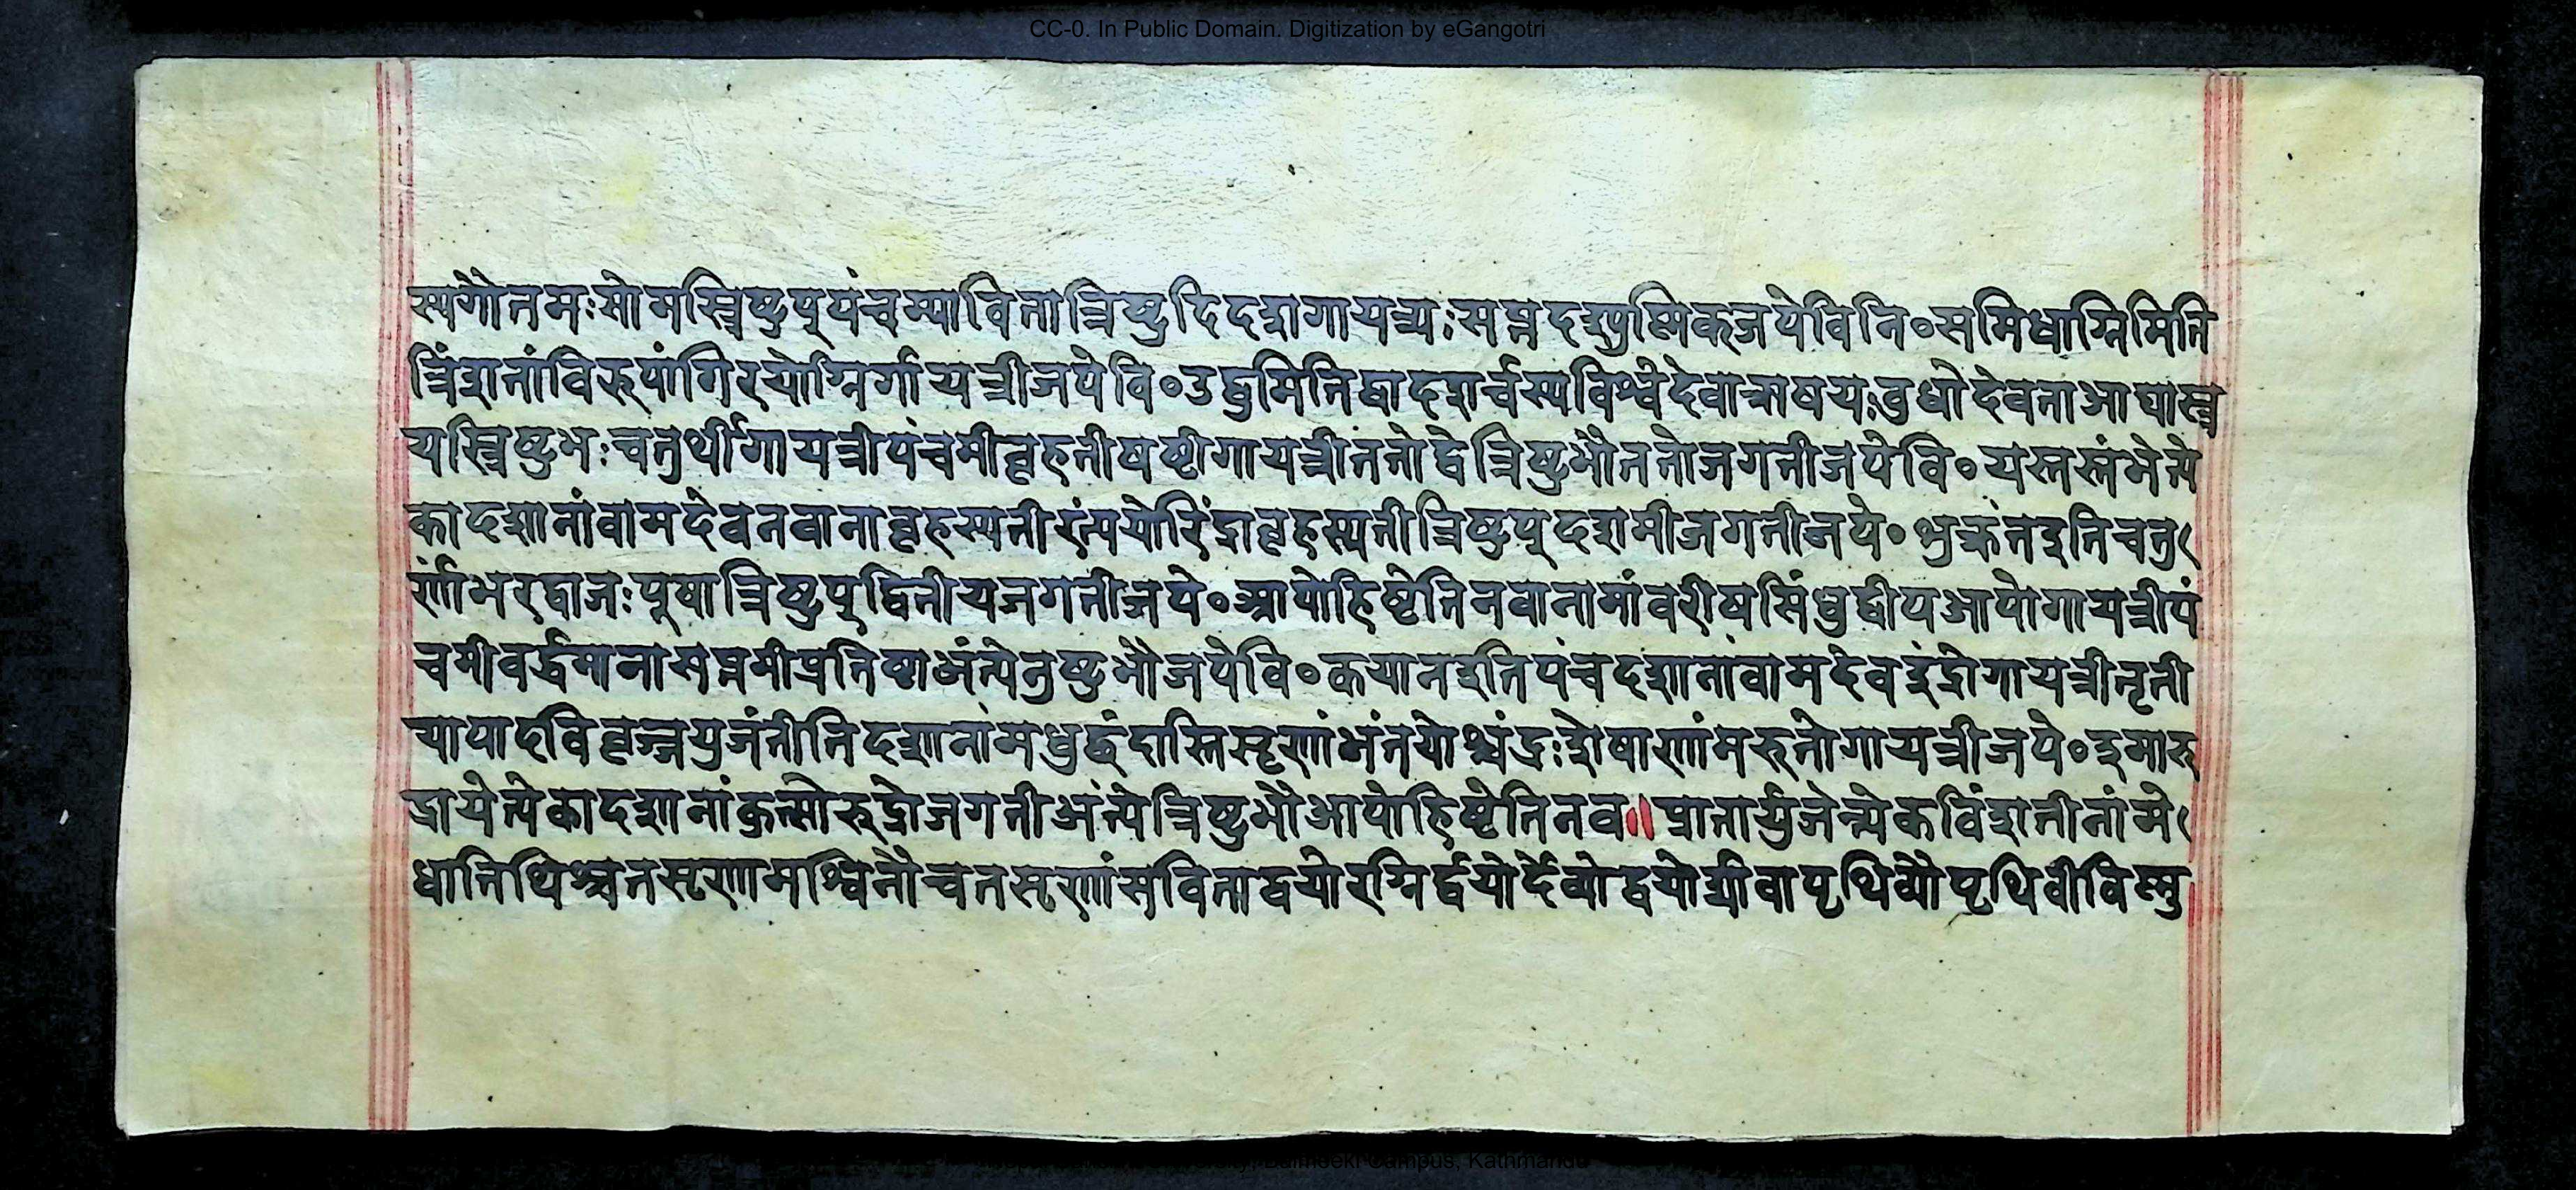 CC-0. In Public Domain. Digitization by eGangotri
स्यगौतमःसोमस्त्रिष्टुप्पंचम्यावितात्रिष्टुदिदशगायत्र्यःसप्तदश्युष्मिकजपेविनि०समिधाग्निमिति
त्रिंशतांविरुपांगिरयोग्निर्गायत्रीजपेवि०उद्बुमितिद्वादशर्चस्यविश्वेदेवाऋषयःबुधोदेवताआद्यास्त्र
यस्त्रिष्टुभःचतुर्थीगायत्रीपंचमीबृहतीषष्टीगायत्रीततोद्वेत्रिष्टुभौततोजगतीजपेवि०यस्तस्तंभेत्ये
कादशानांवामदेवनवानाबृहस्पतीरंत्ययोरिंद्राबृहस्पतीत्रिष्टुप्दशमीजगतीजपे०शुक्रंतइतिचतु
र्णांभरद्वाजःपूषात्रिष्टुप्द्वितीयजगतीजपे०आपोहिष्टेतिनवानामांवरीषसिंधुद्वीपआपोगायत्रीपं
चमीवर्द्धमानासप्तमीप्रतिष्ठाअंत्येनुष्टुभौजपेवि०कयानइतिपंचदशानांवामदेवइंद्रोगायत्रीतृती
यापादविबृज्जयुजंतीतिदशानांमधुछंदास्तिसृणांभंतयोश्चंद्रःशेषाणांमरुतोगायत्रीजपे०इमारु
द्रायेत्येकादशानांकुत्सोरुद्रोजगतीअंत्येत्रिष्टुभौआपोहिष्टेतिनव॥प्रातार्युजेत्येकविंशतीनांमे
धातिथिश्चतसृणामश्विनौचतसृणांसविताद्वयोरग्निर्द्वयोर्देव्योद्वयोर्द्यावापृथिव्यौपृथिवीविष्णु